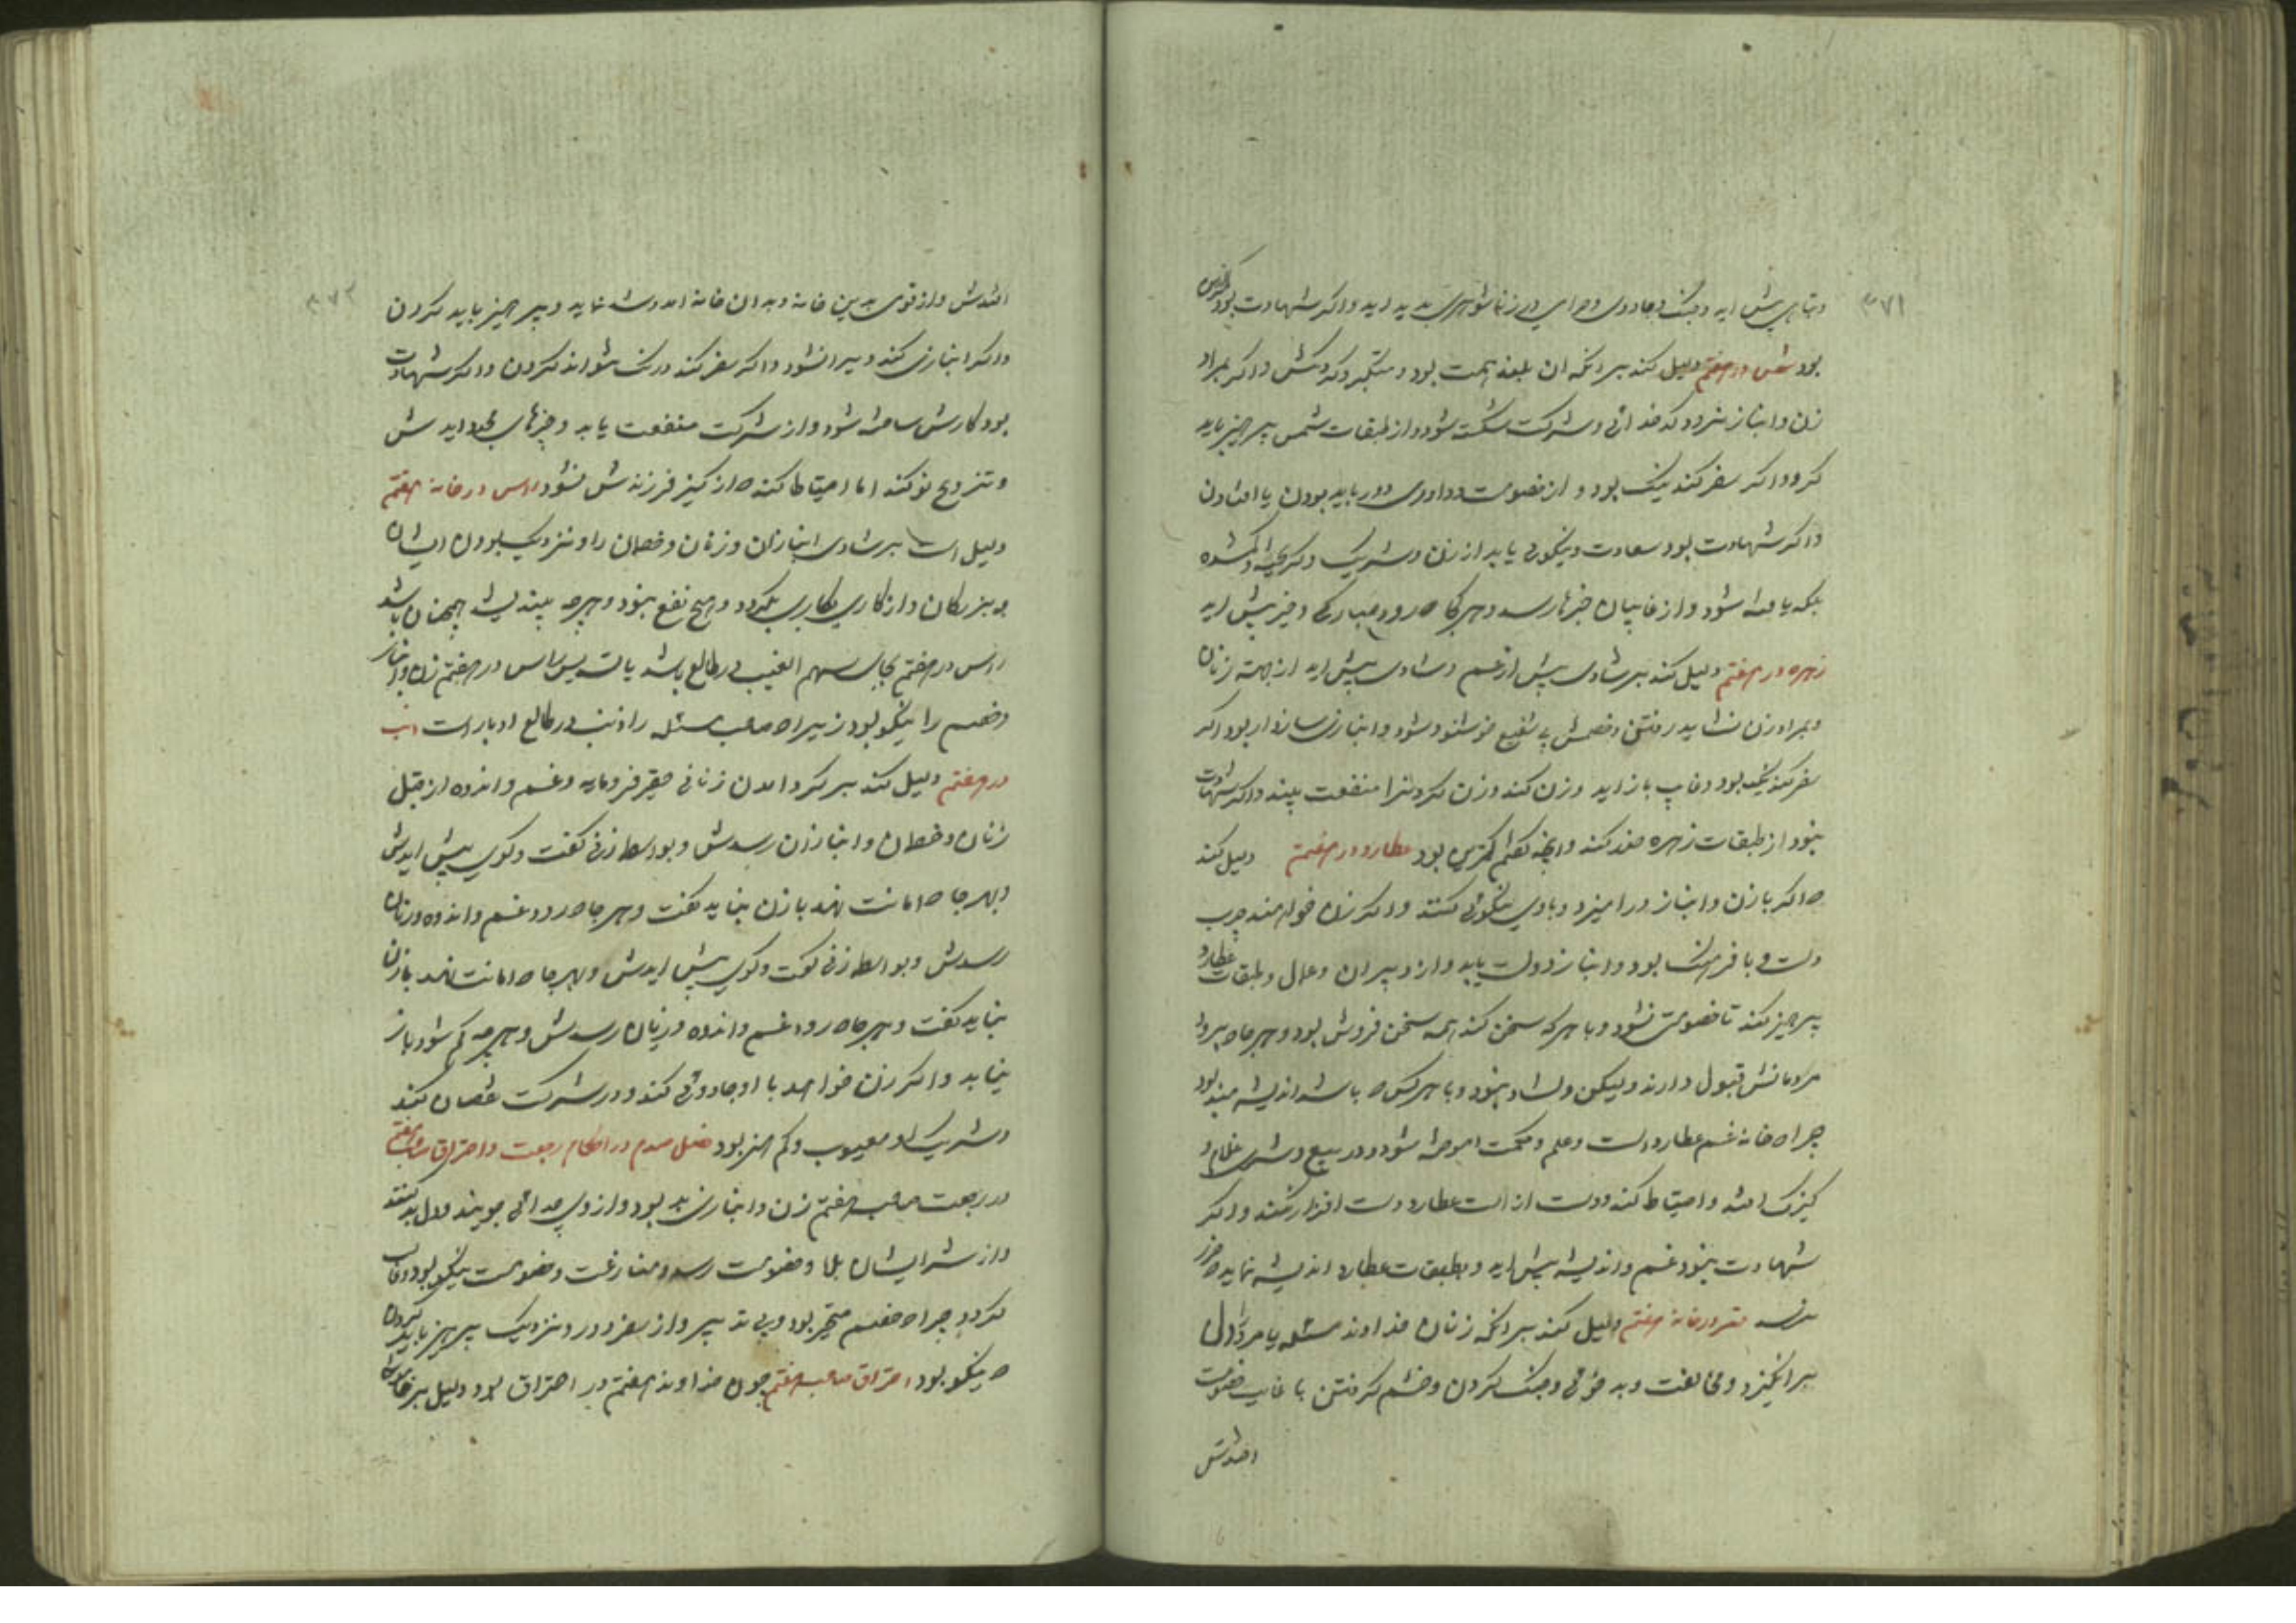 ۳۷۱
بود شمس در هفتم دلیل کند بر انکه ان بلند همت بود و متکبر و کردکش و اکر بمراد
زن و انباز نرود کدخدائی و شرکت شکسته شود و از طبقات شمس پرهیز باید
کرد و اکر سفر کند نیک بود و از خصومت و داوری دور باید بودن یا افتادن
و اکر شهادت بود سعادت و نیکوئی یابد از زن و شریک و کریخته و کمشده
بلکه یافته شود و از غایبان خبرها رسد و هر کجا که رود مبارکی و خیر پیش اید
زهره در هفتم دلیل کند بر شادی پیش از غم و شادی پیش اید از جهت زنان
و بمراد زن نشاید رفتن و خصمش بی شفیع خوشنود شود و انبازی سازوار بود اکر
سفر کند نیک بود و غایب باز اید و زن کند و زن کردنرا منفعت بیند و اکر شهادت
نبود از طبقات زهره حذر کند وانچه کفتم کمترین بود عطارد در هفتم دلیل کند
که اکر با زن و انباز درامیزد و با وی نیکوئی کنند و اکر زن خواهد چرب
دست و با فرهنک بود و انباز دولت یابد و از دبیران و عمال و طبقات عطارد
پرهیز کند تا خصومت نشود و با هر که سخن کند همه سخن فروش بود و هر جا که برود
مردمانش قبول دارند ولیکن دلشاد نبود و با هر کس که باشد اندیشه مند بود
چرا که خانه غم عطارد است و علم و حکمت اموخته شود و در بیع و شری غلام و
کنیزک افتد و احتیاط کند و دست از الت عطارد دست افزار نکند و اکر
شهادت نبود غم و اندیشه پیش اید و بطبقات عطارد اندیشه نماید که ضرر
رسد قمر در خانه هفتم دلیل کند بر انکه زنان خداوند مسئله یا مرد اول
برانکیزد و مخالفت و بدخوئی و جنک کردن و خشم کرفتن با غایب خصومت
افتدش
۳۷۲
افتدش و از قوی بدین خانه و بدان خانه امد و شد نماید و پرهیز باید کردن
و اکر انبازی کند و میرا نشود و اکر سفر کند درنک نتواند کردن و اکر شهادت
بود کارش ساخته شود و از شرکت منفعت یابد و چیزهای مجدد ایدش
و تزویج نو کند اما احتیاط کند که از کنیز فرزندش نشود راس در خانه هفتم
دلیل است بر شادی انبازان و زنان و خصمان را و نزدیک بودن ایشان
به بزرکان و از کاری بکاری بکردد و هیچ نفع نبود و هر چه بیندیشد همچنان باشد
راس در هفتم بجای سهم الغیب در طالع باشد یافت پس راس در هفتم زن و انباز
و خصم را نیکو بود زیرا که صاحب مسئله را ذنب در طالع ادبار است ذنب
در هفتم دلیل کند بر کرد امدن زنانی حقیر فرومایه و غم و اندوه از قبل
زنان و خصمان و انبازان رسدش و بواسطه زنی کفت و کوی پیش ایدش
و بهر جا که امانت نهد با زن نباید کفت و هر جا که رود غم و اندوه و زیان
رسدش و بواسطه زنی کفت و کوی پیش ایدش و بهر جا که امانت نهد با زن
نباید کفت و هر جا که رود غم و اندوه و زیان رسدش و هر چه کم شود باز
نیابد و اکر زن خواهد با او جادوئی کند و در شرکت نقصان کند
و شریک او معیوب و کم هنر بود فصل سیم در احکام رجعت و احتراق صاحب هفتم
در رجعت صاحب هفتم زن و انبازی بد بود و از وی جدائی جویند
و از شر ایشان بلا و خصومت رسد و منازعت و خصومت نیکو بود و غایب
کردد چرا که خصم متحیر بود و بی تدبیر و از سفر دور و نزدیک پرهیز باید کردن
که نیکو بود احتراق صاحب هفتم چون خداوند هفتم در احتراق بود دلیل بر